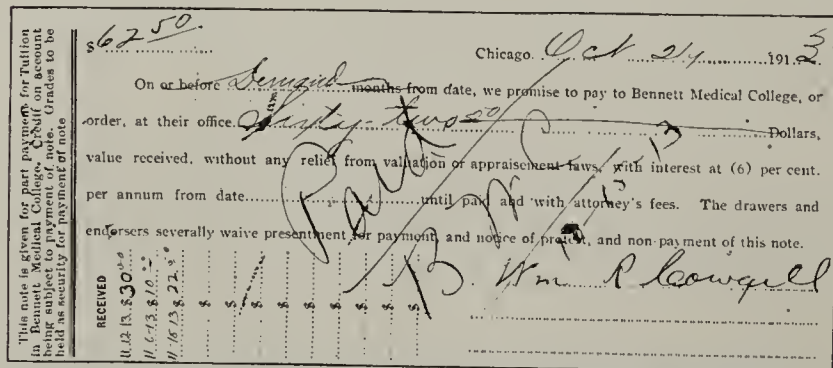 This note is given for part payment for Tuition
in Bennett Medical College. Credit on account
being subject to payment of note. Grades to be
held as security for payment of note
$62 50
Chicago. Oct 24 1913
On or before Demand months from date, we promise to pay to Bennett Medical College, or
order, at their office. Sixty-two 50 Dollars,
value received, without any relief from valuation or appraisement laws, with interest at (6) per cent.
per annum from date until paid and with attorney's fees. The drawers and
endorsers severally waive presentment for payment, and notice of protest, and non-payment of this note.
Wm R Cowgill
Paid
RECEIVED
11.12 13. $ 30 00
11.6-13 $ 10
11-15 13 $ 22
$
$
$
$
$
$
$